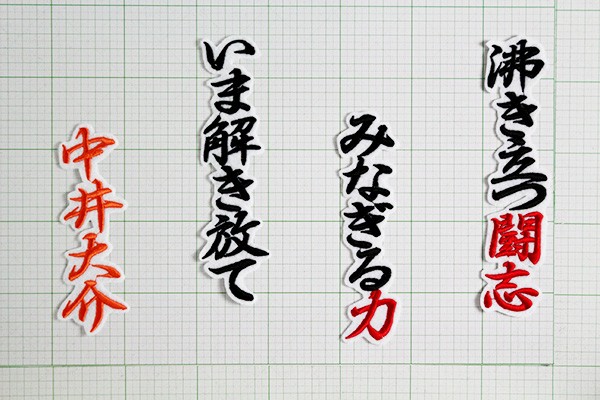 沸き立つ闘志
みなぎる力
いま解き放て
中井大介